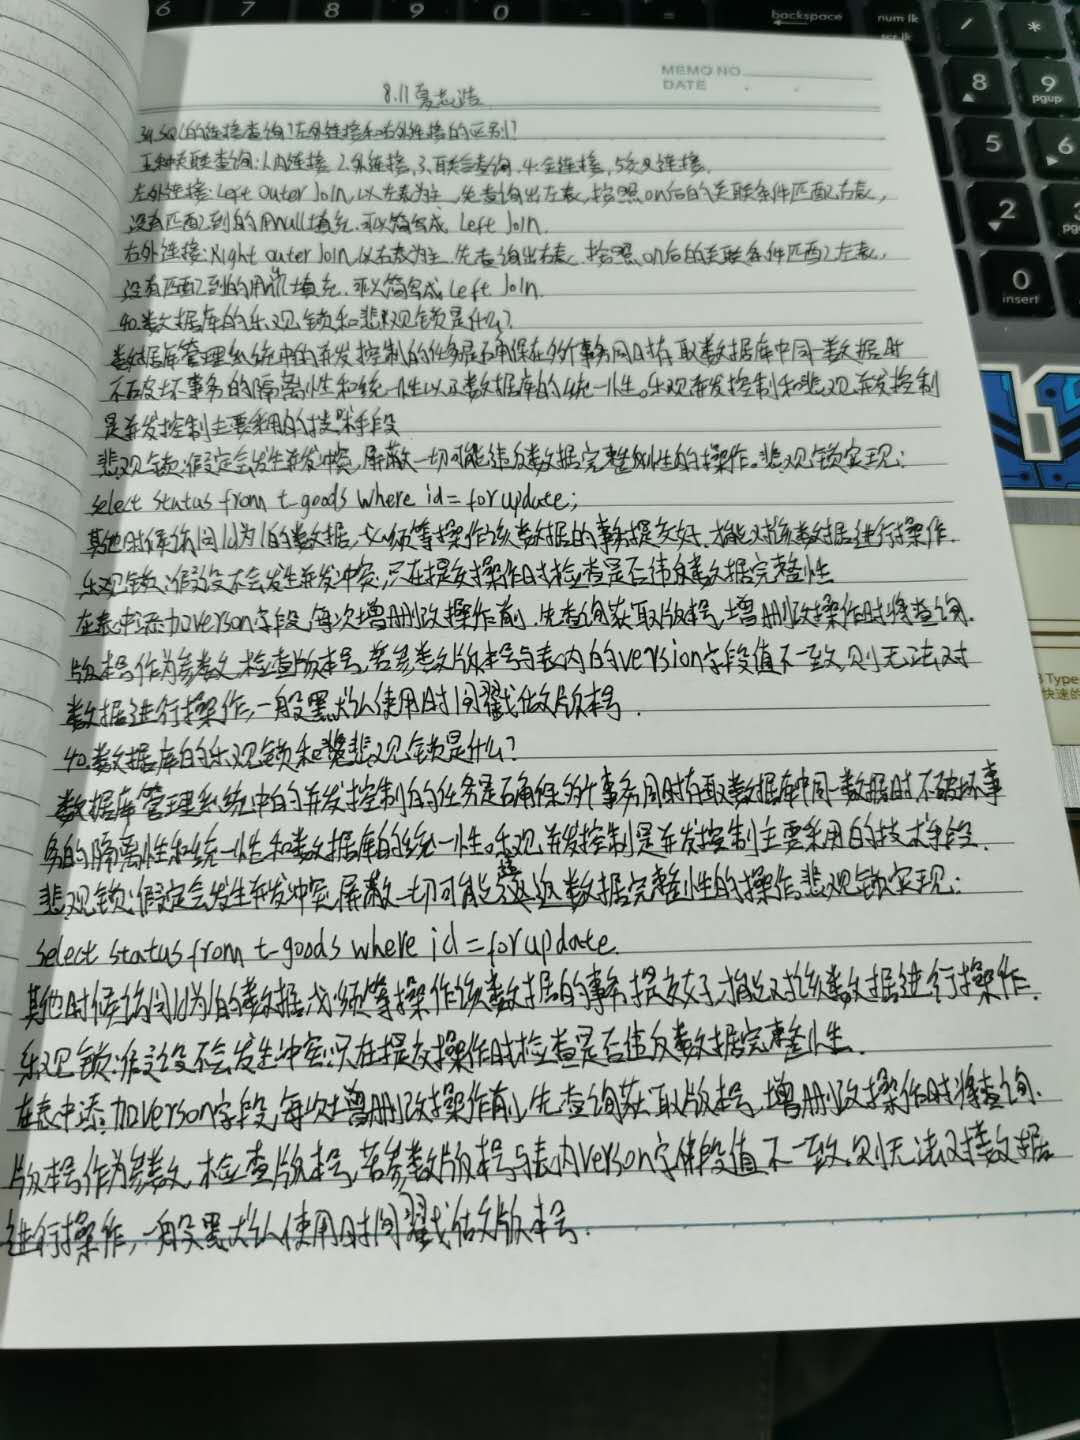 6 7 8 9 0
backspace
num lk
scr lk
/ *
8
9
pgup
5
6
2
3
0
insert
Type
快速的
MEMO NO.
DATE
8.11
39.SQL的连接查询?左外连接和右外连接的区别?
五种关联查询:1.内连接 2.外连接,3.联合查询,4.全连接,5.交叉连接.
左外连接:Left outer Join,以左表为主,先查询出左表,按照on后的关联条件匹配右表,
没有匹配到的用null填充.可以简写成 Left Join.
右外连接:Right outer Join,以右表为主,先查询出右表,按照on后的关联条件匹配左表,
没有匹配到的用null填充.可以简写成Left Join.
40.数据库的乐观锁和悲观锁是什么?
数据库管理系统中的并发控制的任务是确保在多个事务同时存取数据库中同一数据时
不破坏事务的隔离性和统一性以及数据库的统一性。乐观并发控制和悲观并发控制
是并发控制主要采用的技术手段
悲观锁:假定会发生并发冲突,屏蔽一切可能违反数据完整性的操作。悲观锁实现:
select status from t_goods where id= for update;
其他时候访问id为1的数据,必须等操作该数据的事务提交好.才能对该数据进行操作.
乐观锁:假设不会发生并发冲突,只在提交操作时检查是否违反数据完整性
在表中添加verson字段,每次增删改操作前,先查询获取版本号,增删改操作时将查询.
版本号作为参数,检查版本号,若参数版本号与表内的version字段值不一致,则无法对
数据进行操作,一般默认使用时间戳做版本号.
40.数据库的乐观锁和悲观锁是什么?
数据库管理系统中的并发控制的任务是确保多个事务同时存取数据库中同一数据时不破坏事
务的隔离性和统一性和数据库的统一性。乐观并发控制是并发控制主要采用的技术手段.
悲观锁:假定会发生并发冲突,屏蔽一切可能违反数据完整性的操作,悲观锁实现:
select status from t-goods where id =for update.
其他时候访问id为1的数据,必须等操作该数据的事务提交好,才能对该数据进行操作.
乐观锁:假设不会发生冲突,只在提交操作时检查是否违反数据完整性.
在表中添加verson字段,每次增删改操作前,先查询获取版本号,增删改操作时将查询.
版本号作为参数,检查版本号,若参数版本号与表内verson字段值不一致,则无法对数据
进行操作,一般默认使用时间戳做版本号.